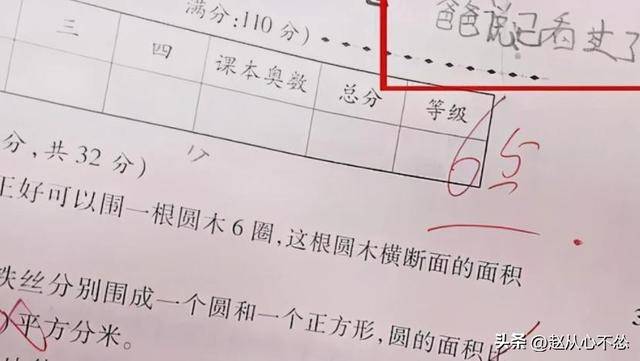 爸爸说已看了
满分:110分)
三 四 课本奥数 总分 等级
65
分,共32分)
正好可以围一根圆木6圈,这根圆木横断面的面积
铁丝分别围成一个圆和一个正方形,圆的面积
)平方分米。
3
头条 @赵从心不怂